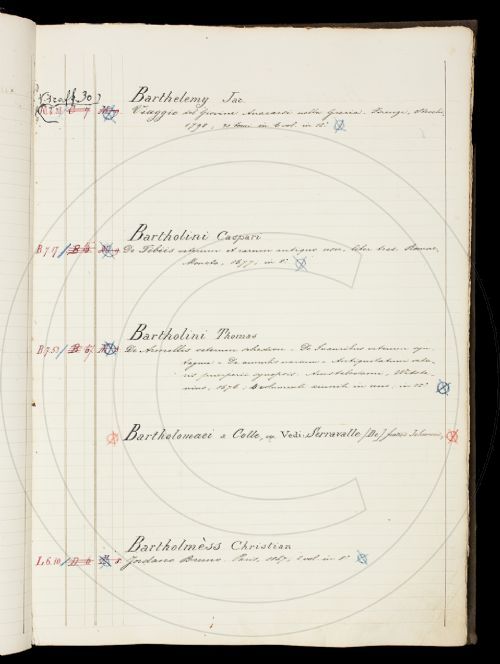 Barthelemy Jac.
Viaggio del Giovine Anacarsi nella Grecia. Firenze,
1798, in 12°
Bartholini Caspari
B 7. 17 De Tibiis veterum et earum antiquo usu, libri tres. Romae,
Moneta, 1677, in 8°
Bartholini Thomas
B 7. 53 De Armillis veterum schedion. De Inauribus veterum syn-
tagma. Antiquitatum vete-
ris puerperii synopsis. Amstelodami, Wetste-
nius, 1676, in uno, in 12°
Bartholomaei a Colle, Vedi: Serravalle (De)
Bartholmèss Christian
L. 6. 10 Jordano Bruno. Paris, 1847, 2 vol. in 8°